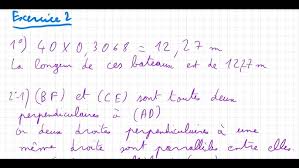 Exercice 2
1°) 40 x 0,3068 = 12,27 m
La longeur de ces bateaux est de 12,27 m
2°-1) (BF) et (CE) sont toutes deux
perpendiculaires à (AD)
or deux droites perpendiculaires à une
même droite sont parallèles entre elles